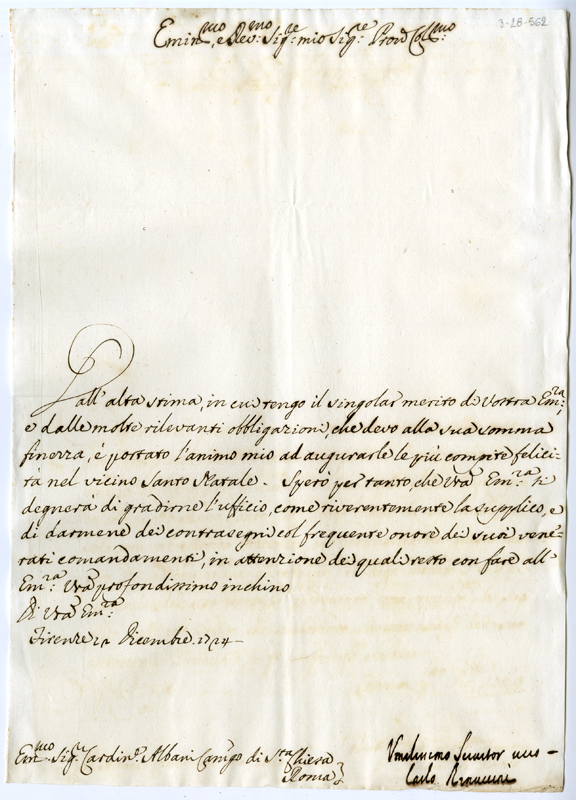 3-28-562
Emin.mo, e Rev.mo Sig.re mio Sig.re Prōn Col.mo
Dall'alta stima, in cui tengo il singolar merito di Vostra Em.ra,
e dalle molte rilevanti obbligazioni, che devo alla sua somma
finezza, é portato l'animo mio ad augurarle le piú compite felici-
tà nel vicino Santo Natale. Spero per tanto, che Vrā Em.ra si
degnerá di gradirne l'uffizio, come riverentemente la supplico, e
di darmene dei contrasegni col frequente onore de suoi vene-
rati comandamenti, in attenzione de quali resto con fare all'
Em.ra Vrā profondissimo inchino
Di Vrā Em.ra
Firenze Dicembre 1724
Em.mo Sig.r Cardin.e Albani Camgo di S.ta Chiesa
Roma
Servitor
Carlo